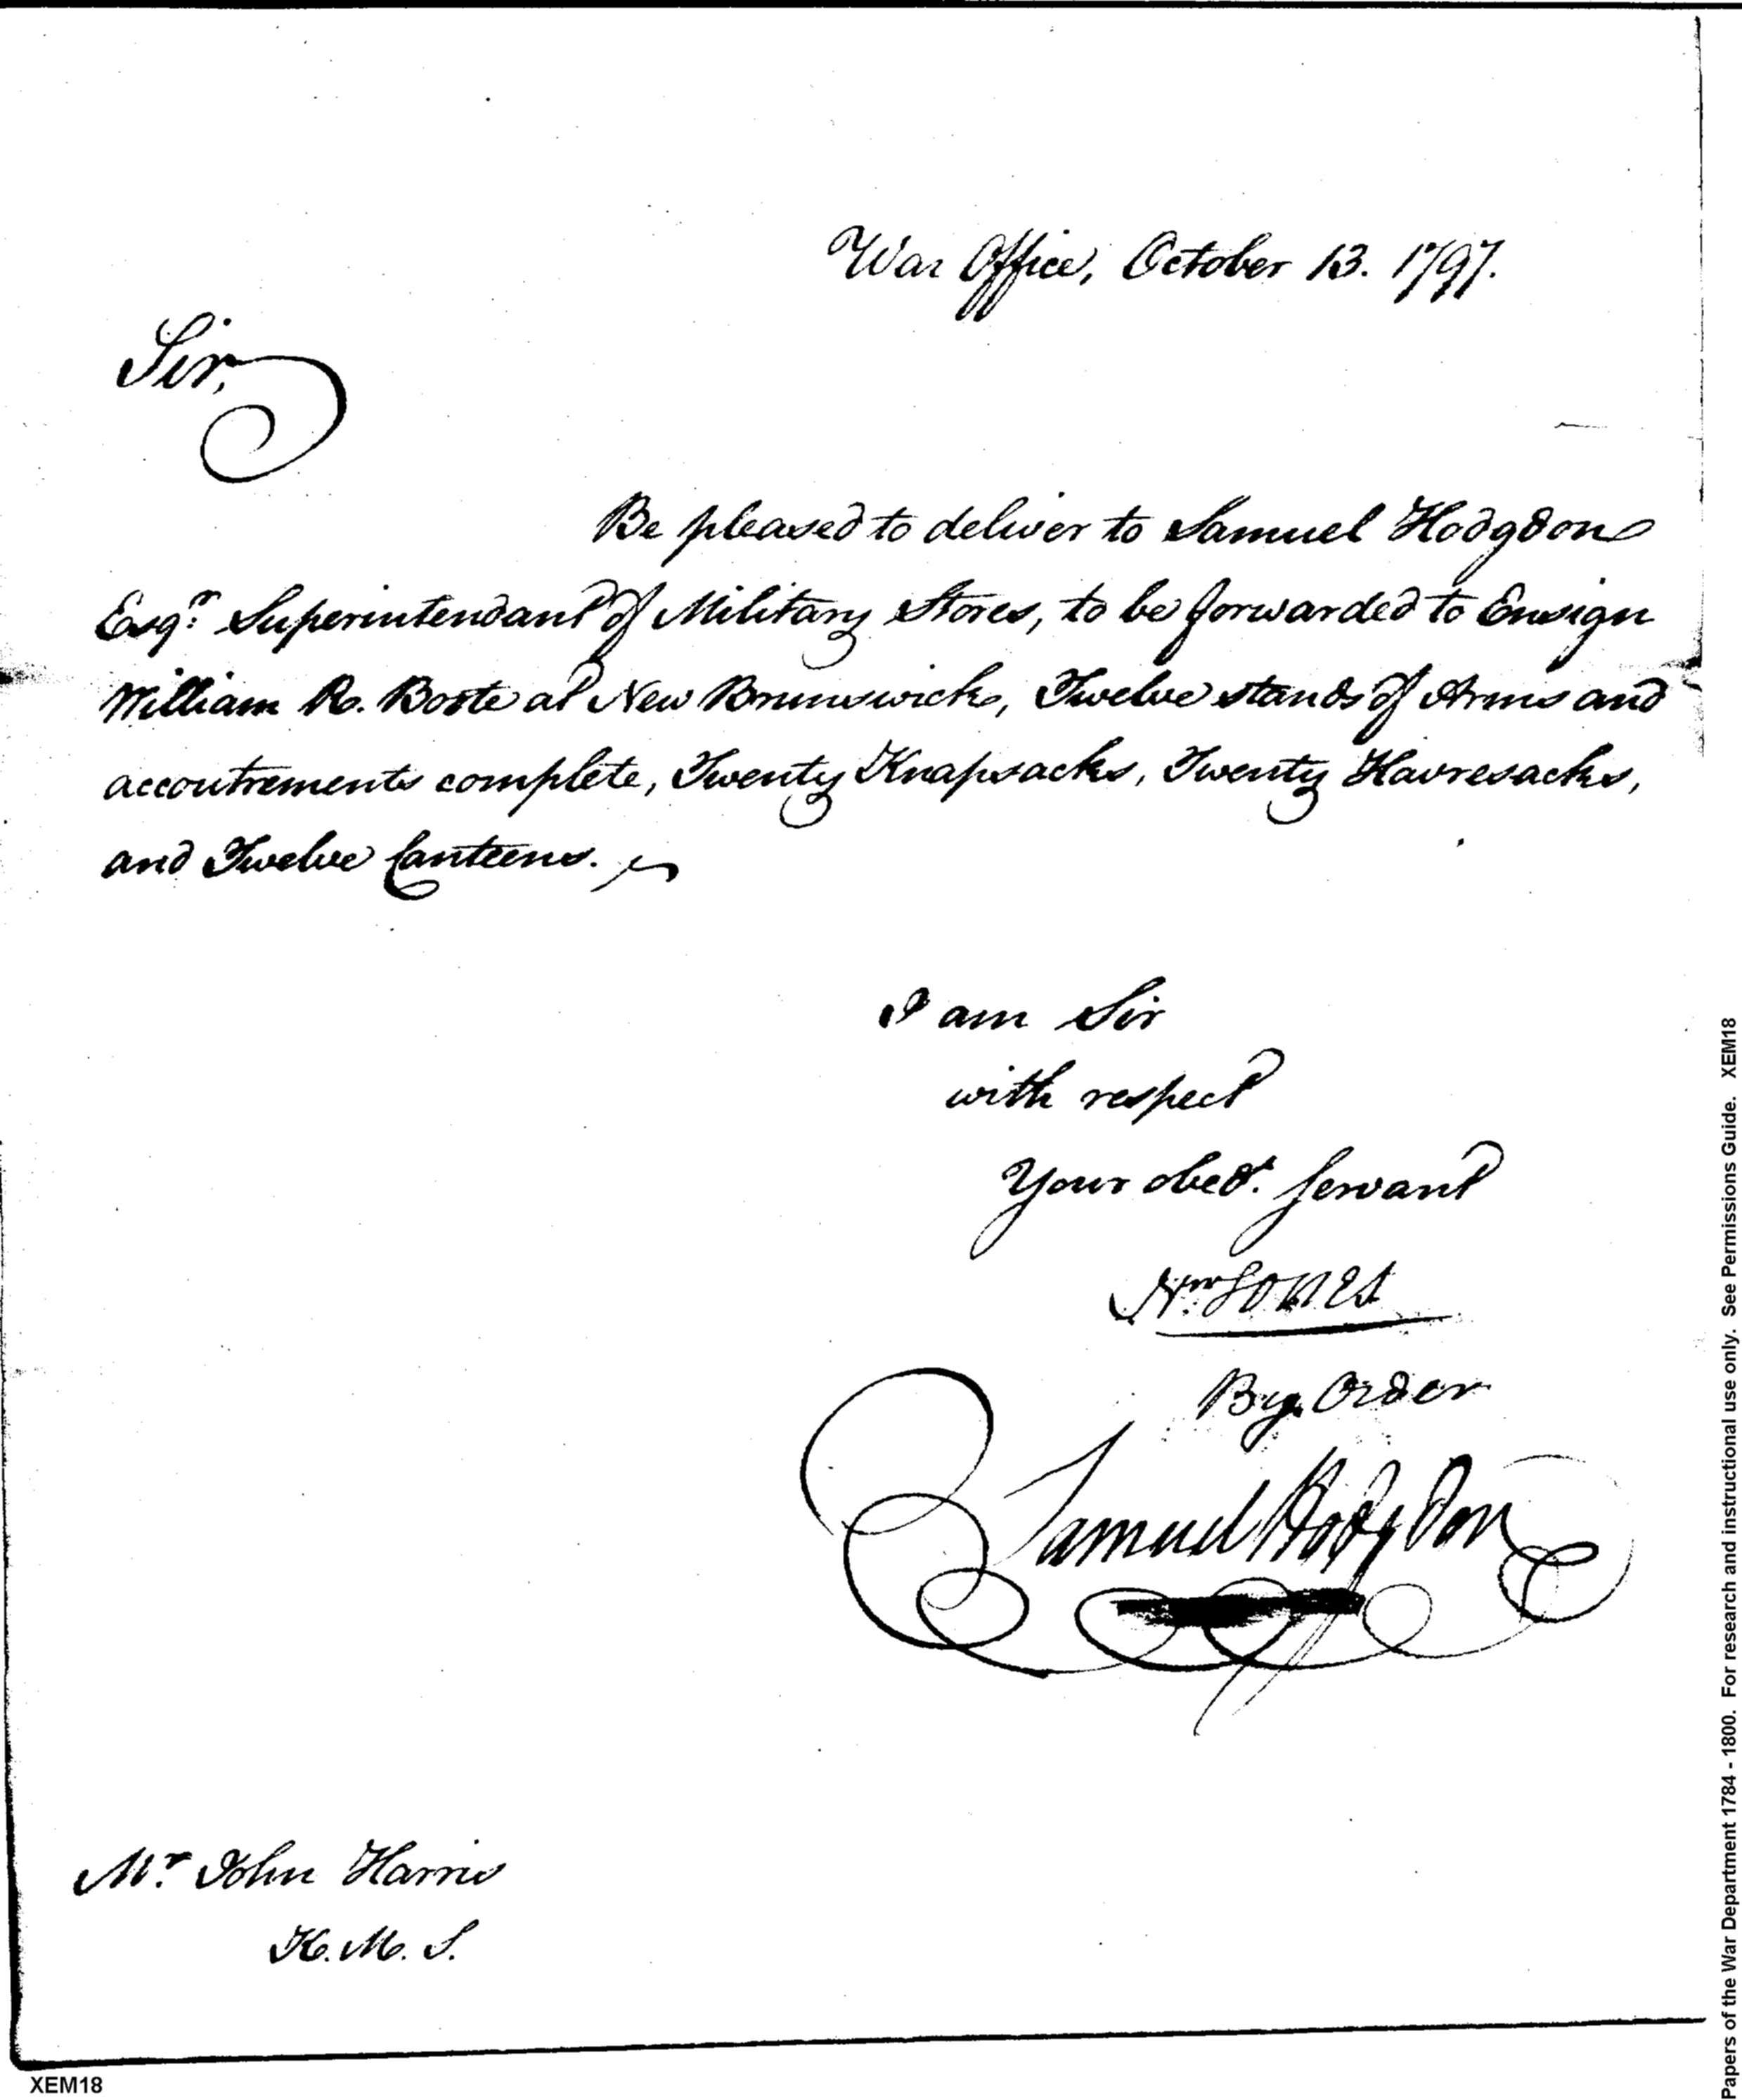 War Office, October 13. 1797.
Sir,
Be pleased to deliver to Samuel Hodgdon
Esqr. Superintendant of Military Stores, to be forwarded to Ensign
William R. Boote at New Brunswick, Twelve stands of Arms and
accoutrements complete, Twenty Knapsacks, Twenty Havresacks,
and Twelve Canteens.
I am Sir
with respect
Your obedt. Servant
Wm Jones
By Order
Samuel Hodgdon
Mr. John Harris
K. M. S.
XEM18
Papers of the War Department 1784 - 1800. For research and instructional use only. See Permissions Guide. XEM18